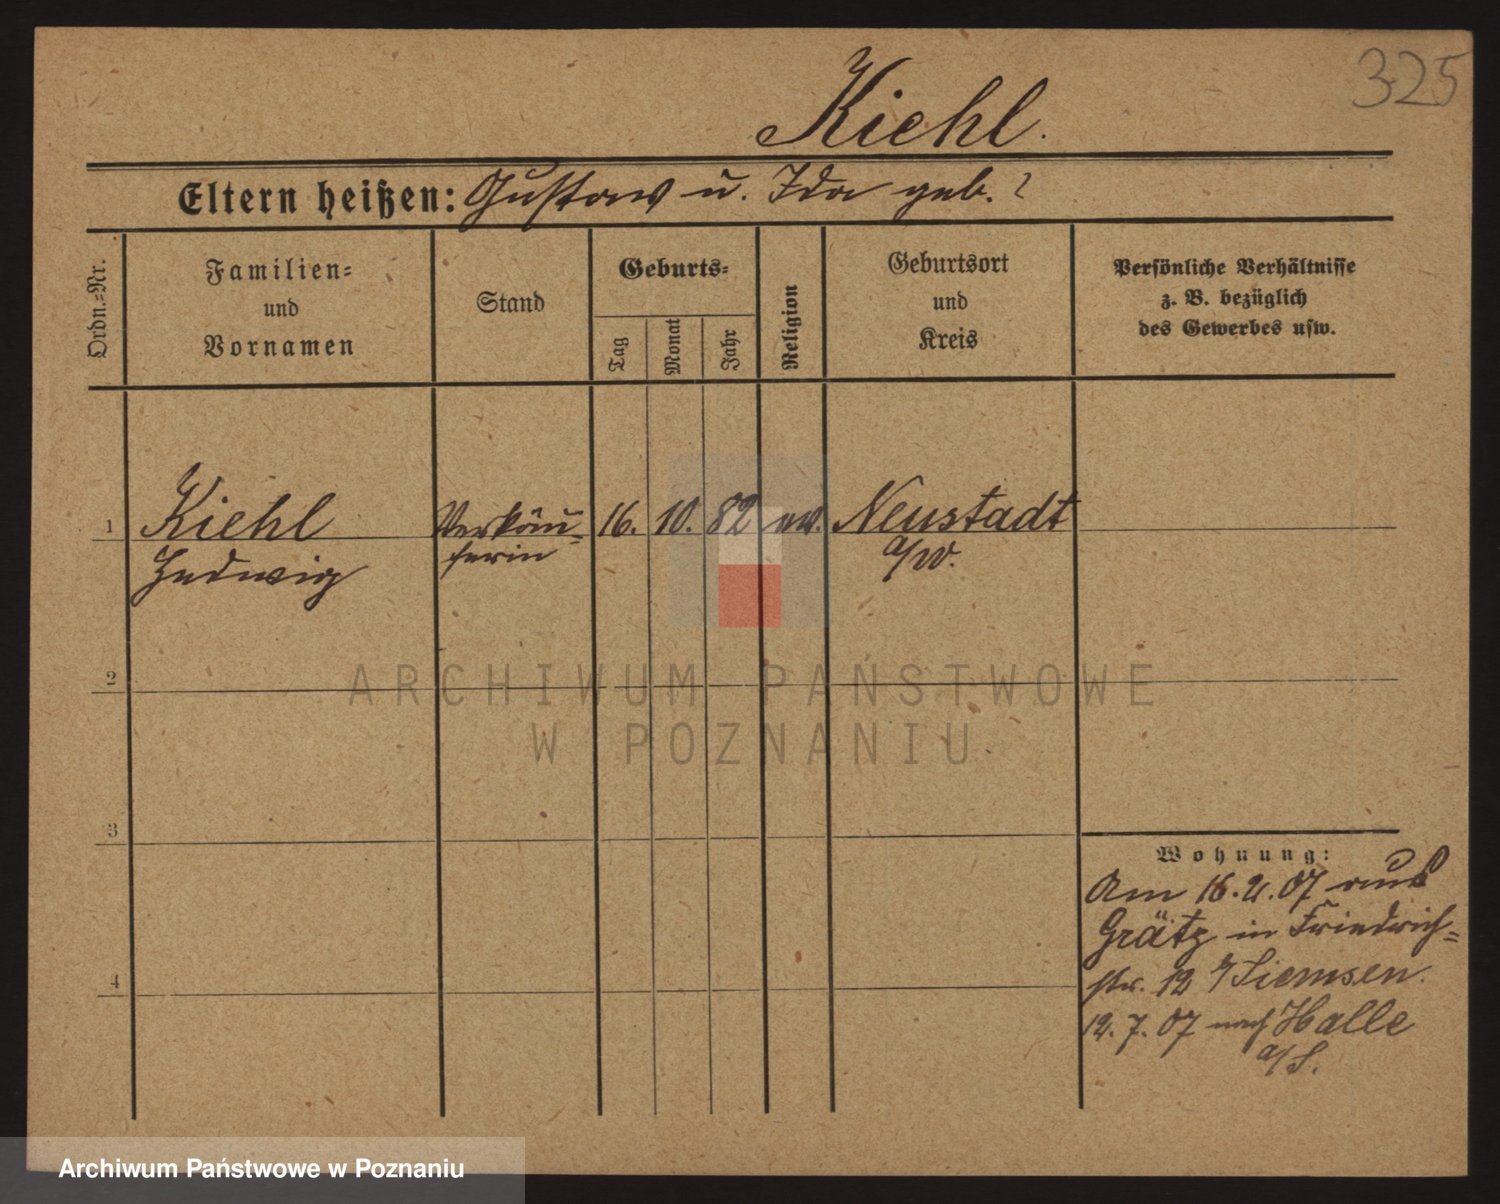 325
Kiehl.
Eltern heißen: Gustav u. Ida geb. ?
Ordn.=Nr.
Familien=
und
Vornamen
Stand
Geburts=
Tag
Monat
Jahr
Religion
Geburtsort
und
Kreis
Persönliche Verhältnisse
z. B. bezüglich
des Gewerbes usw.
1 Kiehl Verkäu= 16. 10. 82 ev. Neustadt
Hedwig ferin a/W.
2
3
4
Wohnung:
Am 16.2.07 aus
Grätz in Friedrich=
str. 12 b/Siemsen.
12.7.07 nach Halle
a/S.
ARCHIWUM PAŃSTWOWE
W POZNANIU
Archiwum Państwowe w Poznaniu